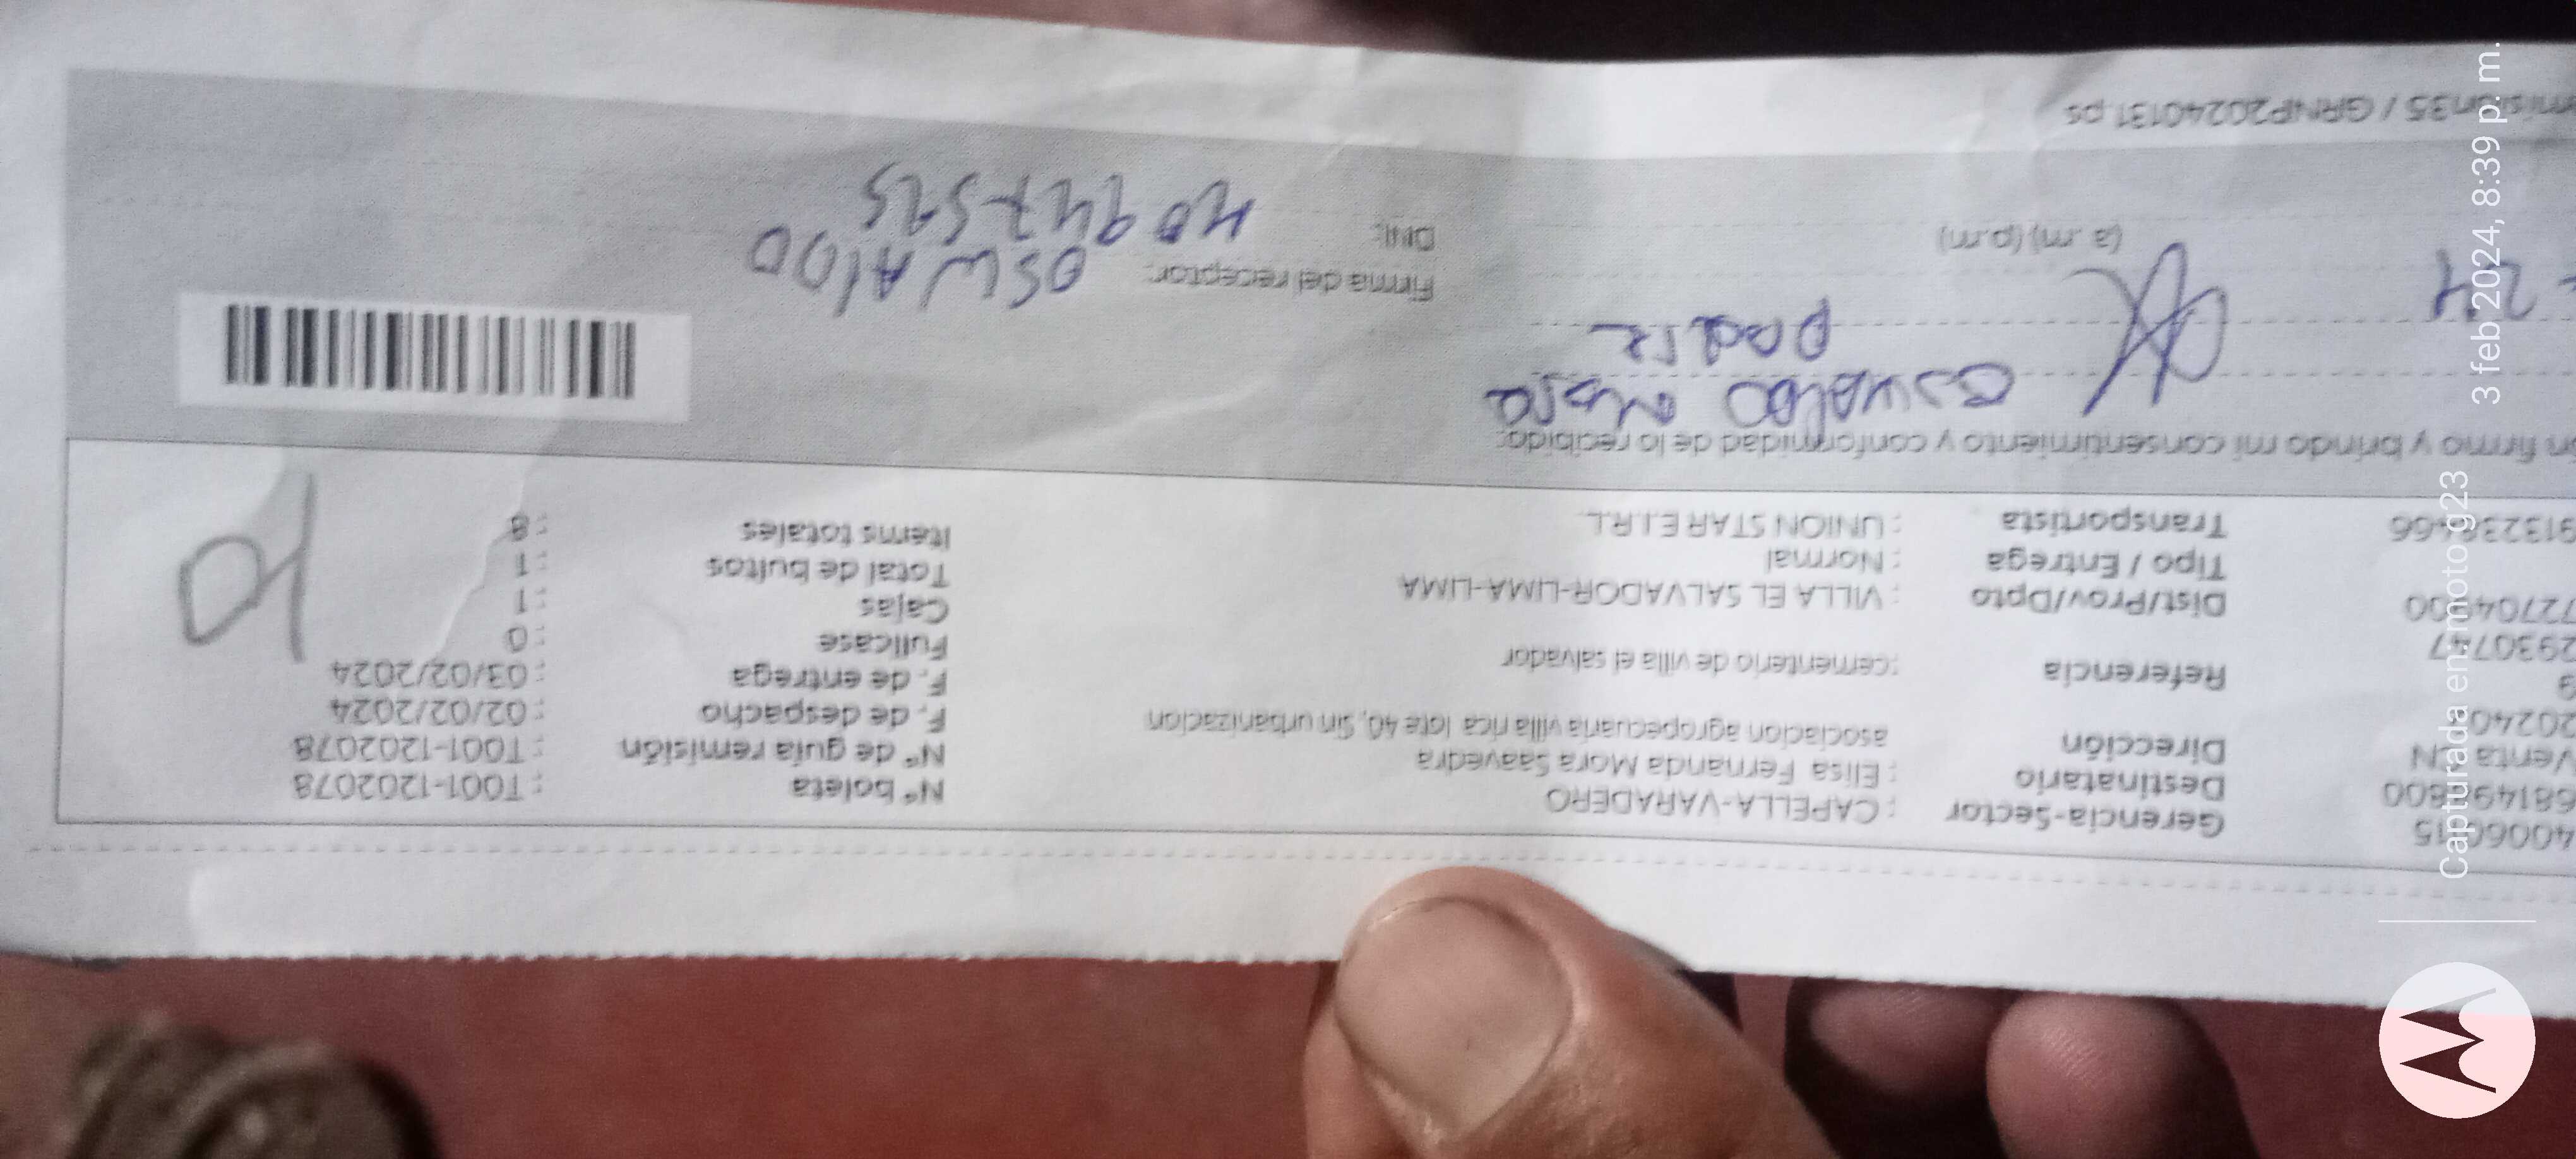 Gerencia-Sector : CAPELLA-VARADERO
Destinatario : Elisa Fernanda Mora Saavedra
Dirección asociacion agropecuaria villa rica lote 40, Sin urbanizacion
Referencia :cementerio de villa el salvador
Dist/Prov/Dpto : VILLA EL SALVADOR-LIMA-LIMA
Tipo / Entrega : Normal
Transportista : UNION STAR E.I.R.L.
Nº boleta : T001-1202078
Nº de guía remisión : T001-1202078
F. de despacho : 02/02/2024
F. de entrega : 03/02/2024
Fullcase : 0
Cajas : 1
Total de bultos : 1
Items totales : 8
firmo y brindo mi consentimiento y conformidad de lo recibido:
oswaldo mora
padre
(a .m) (p.m)
Firma del receptor: OSWAlDO
DNI:
/ GRNP20240131.ps
Capturada en moto g23
3 feb 2024, 8:39 p. m.